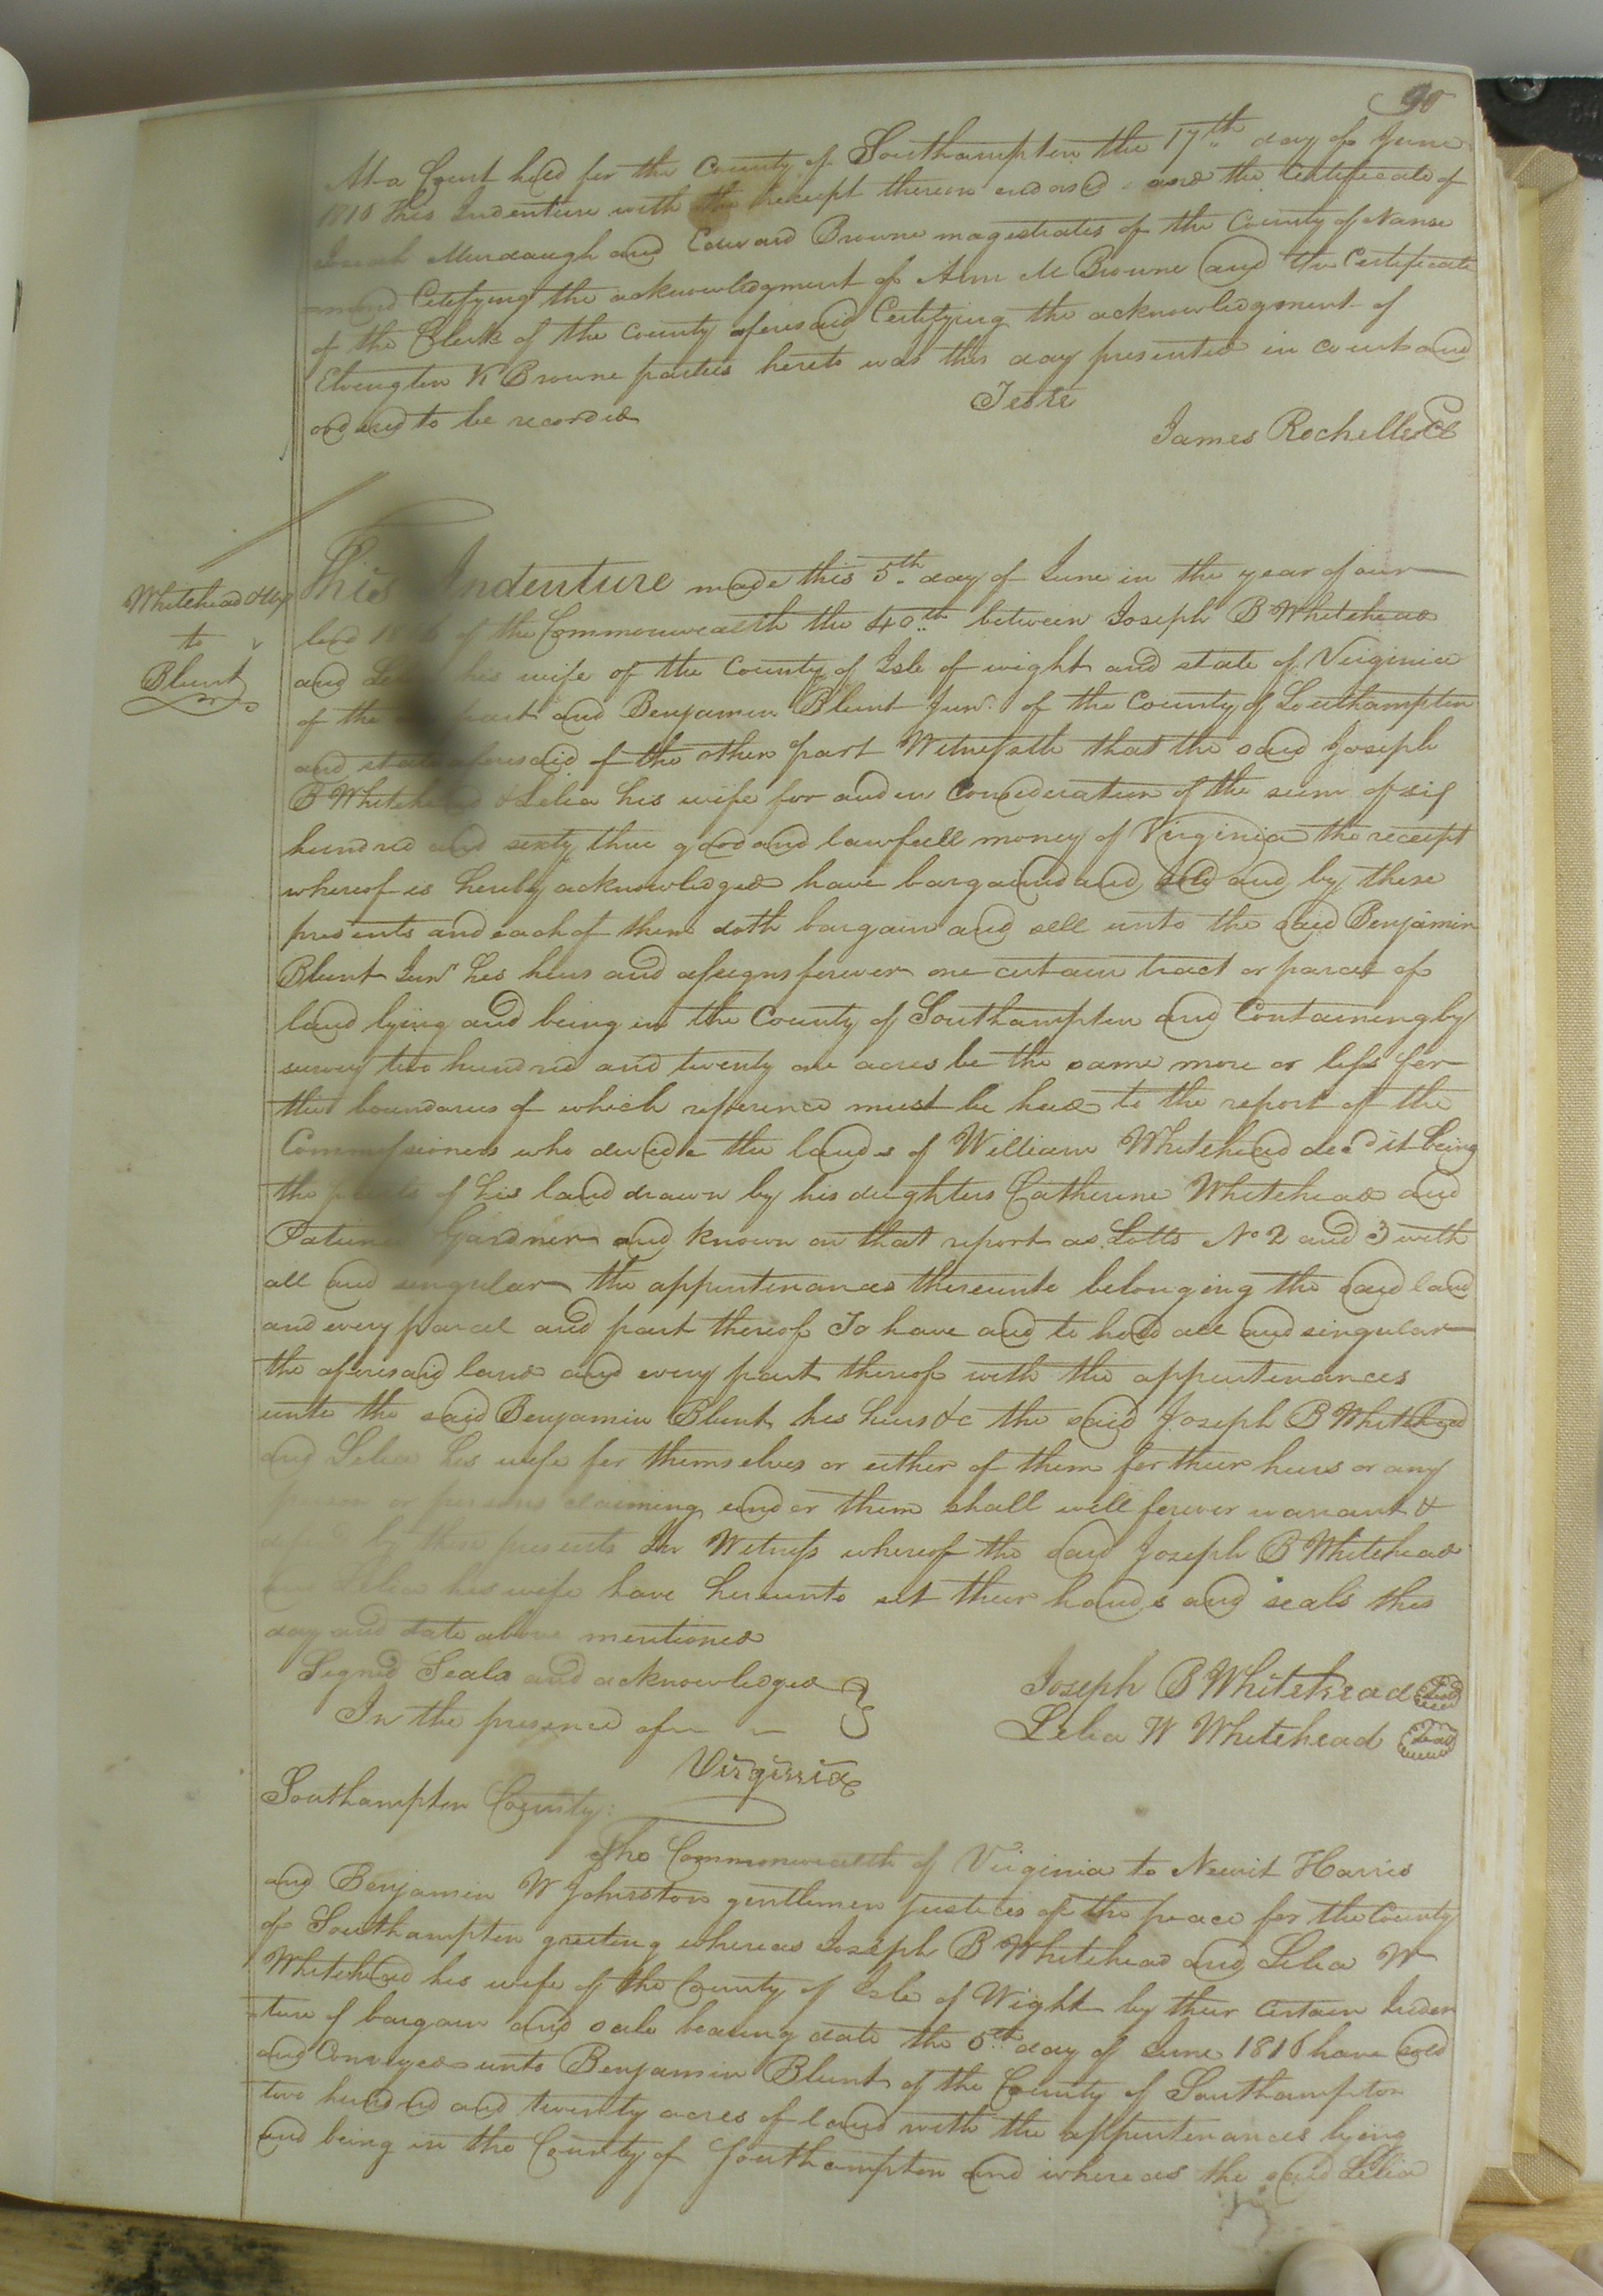 90
At a Court held for the County of Southampton the 17th day of June
1816 this Indenture with the receipt thereon endorsed and the Certificate of
Murdaugh and Edward Browne magestrates of the County of Nanse
mond Cetifying the acknowledgment of Ann M Browne and the Certificate
of the Clerk of the County aforesaid Certifying the acknowledgment of
K Browne parties hereto was this day presented in court and
ordered to be recorded
Teste
James Rochelle Cl
Whitehead & Ux
to
Blunt
This Indenture made this 5th day of June in the year of our
lord 1816 of the Commonwealth the 40th between Joseph B Whitehead
and his wife of the County of Isle of wight and state of Virginia
of the part and Benjamin Blunt Junr of the County of Southampton
and state aforesaid of the other part Witnesseth that the said Joseph
B Whitehead & Lelia his wife for and in Consideration of the sum of six
hundred and sixty three good and lawfull money of Virginia the receipt
whereof is hereby acknowledged have bargained and sold and by these
presents and each of them doth bargain and sell unto the said Benjamin
Blunt Junr his heirs and assigns forever one certain tract or parcel of
land lying and being in the County of Southampton and Containing by
survey two hundred and twenty one acres be the same more or less for
the boundaries of which reference must be had to the report of the
Commissioners who devide the lands of William Whitehead decd it being
the parts of his land drawn by his daughters Catherine Whitehead and
Gardner and known on that report as Lotts No 2 and 3 with
all and singular the appurtenances thereunto belonging the said land
and every parcel and part thereof To have and to hold all and singular
the aforesaid land and every part thereof with the appurtenances
unto the said Benjamin Blunt his heirs &c the said Joseph B Whitehead
and Lelia his wife for themselves or either of them for their heirs or any
person or persons claiming under them shall will forever warrant &
by these presents In Witness whereof the said Joseph B Whitehead
and Lelia his wife have hereunto set their hands and seals this
day and date above mentioned
Signed Seald and acknowledged
In the presence of
Joseph B Whitehead Seal
Lelia W Whitehead Seal
Virginia
Southampton County:
The Commonwealth of Virginia to Newit Harris
and Benjamin W Johnston gentlemen justices of the peace for the County
of Southampton greeting whereas Joseph B Whitehead and Lelia W
Whitehead his wife of the County of Isle of Wight by their certain Inden
ture of bargain and sale bearing date the 5th day of June 1816 have sold
and Conveyed unto Benjamin Blunt of the County of Southampton
two hundred and twenty acres of land with the appurtenances lying
and being in the County of Southampton and whereas the said Lelia